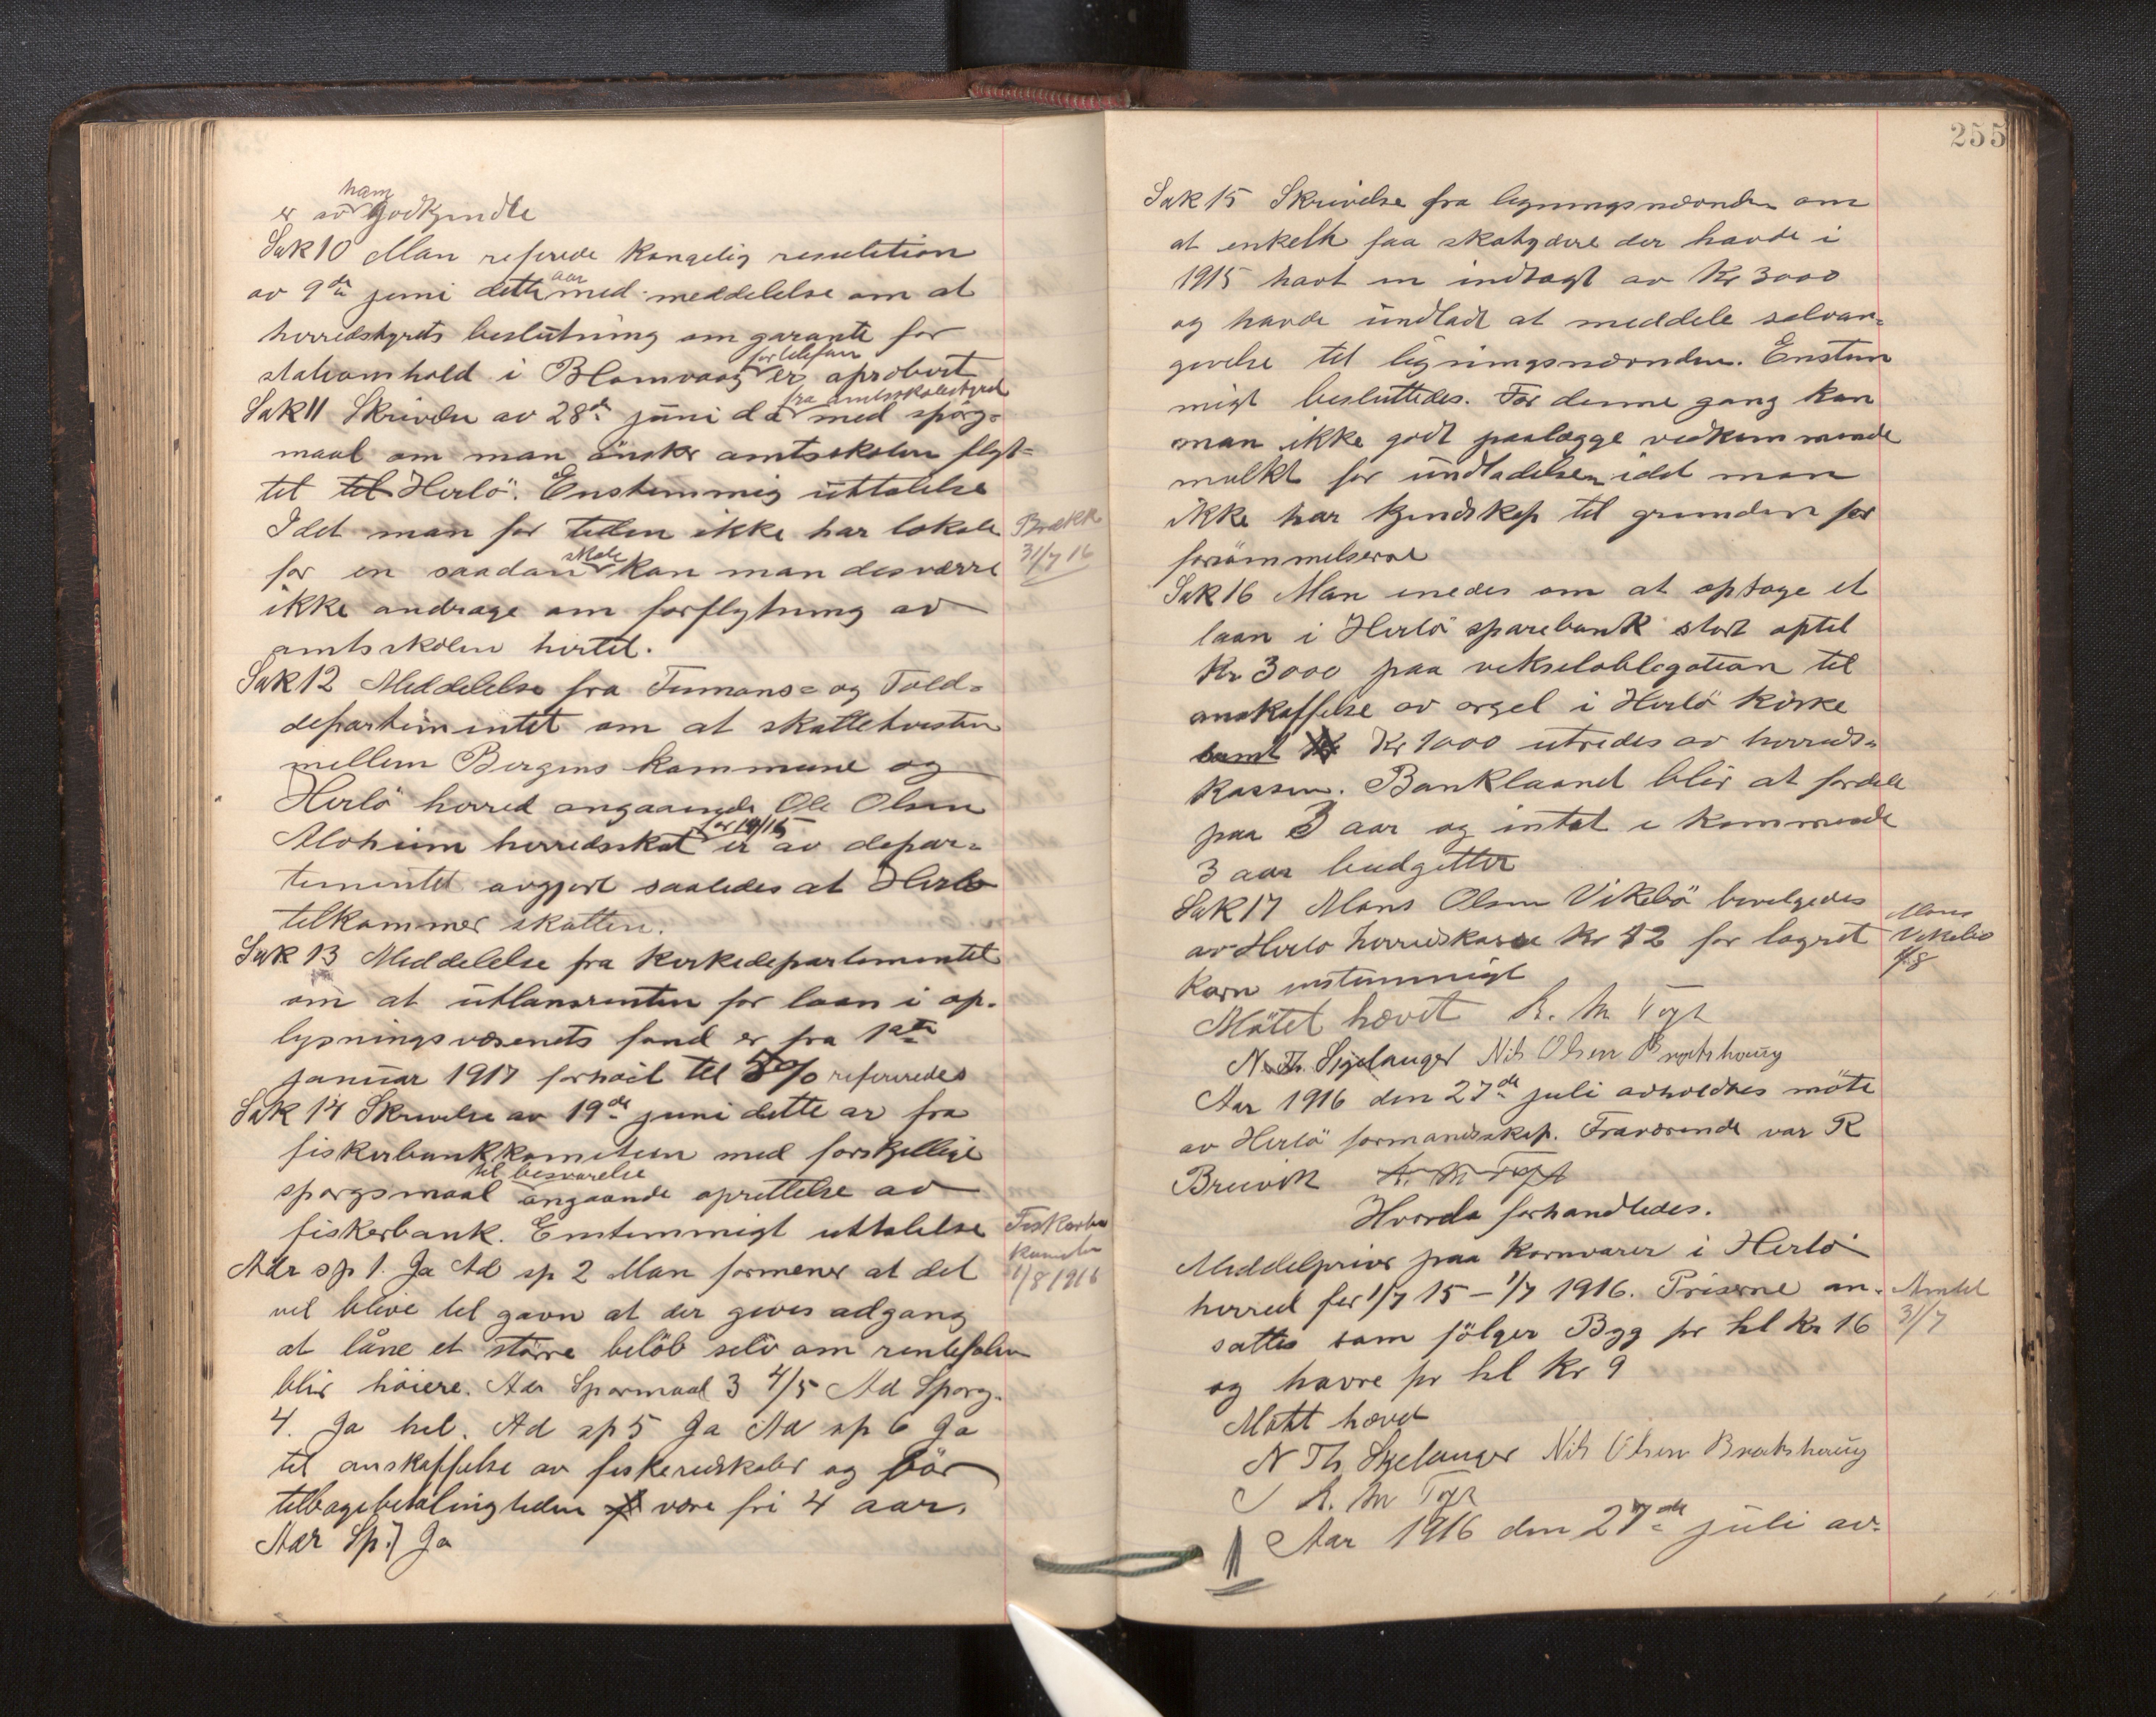 er av ham godkjendte
Sak 10 Man referede kongelig resulution
av 9de juni dette aar med meddelelse om at
herredstyrets beslutning om garanti for
stationshold i Blomvaag for telefon er aprobert
Sak 11 Skrivelse av 28de juni d a fra amtsskolestyret med spørg-
maal om man ønsker amtsskolen flyt-
tet til Herlö. Enstemmig uttalelse
Idet man for tiden ikke har lokale
for en saadan skole kan man desværre
ikke andrage om forflytning av
amtsskolen hertil.
Brækk
31/7 16
Sak 12 Meddelelse fra Finans- og Told-
departementet om at skattetvisten
mellem Bergens kommune og
Herlö herred angaaende Ole Olsen
Alvheim herredsskat for 14/15 er av depar-
tementet avgjort saaledes at Herlö
tilkommer skatten.
Sak 13 Meddelelse fra Kirkedepartementet
om at utlansrenten for laan i op-
lysningsvæsenets fond er fra 1ste
januar 1917 forhöiet til 5% refereredes
Sak 14 Skrivelse av 19de juni dette ar fra
fiskerbankkomiteen med forskjellige
spørgsmaal til besvarelse angaaende oprettelse av
fiskerbank. Enstemmigt uttalelse
Fiskerba
komite
1/8 1916
Adr sp 1. Ja Ad sp 2 Man formener at det
vil blive til gavn at der gives adgang
at låne et större belöb selv om rentefoten
blir höiere. Adr Spormaal 3 4/5 Ad Sporg.
4. Ja hel. Ad sp 5 Ja Ad sp 6 Ja
til anskaffelse av fiskeredskaber og bör
tilbagebetalingtiden være fri 4 aar.
Adr Sp. 7 Ja
255
Sak 15 Skrivelse fra ligningsnævnden om
at enkelte faa skatydere der havde i
1915 havt en indtægt av Kr 3000
og havde undladt at meddele selvan-
givelse til ligningsnævnden. Enstem
migt besluttedes. For denne gang kan
man ikke godt paalægge vedkommende
mulkt for undladelsen idet man
ikke har kjendskap til grunden for
forsömmelserne
Sak 16 Man enedes om at optage et
laan i Herlö sparebank stort optil
Kr 3000 paa vekselobligation til
anskaffelse av orgel i Herlö Kirke
samt Kr 1000 utredes av herreds-
kassen. Banklaanet blir at fordele
paa 3 aar og intat i kommende
3 aar budgetter
Sak 17 Mons Olsen Vikebö bevilgedes
av Herlö herredskasse Kr 42 for lagret
korn enstemmigt
Mons
Vikebö
1/8
Mötet hævet R. M Togt
N. Th. Skjelanger Nils Olsen Bratshaug
Aar 1916 den 27de juli avholdtes möte
av Herlö formandsskap. Fraværende var R
Breivik R. M Togt
Hvorda forhandledes.
Meddelpriser paa kornvarer i Herlö
herred for 1/7 15 – 1/7 1916. Priserne an-
sattes som fölger Byg pr hl Kr 16
og havre pr hl Kr 9
Amtet
31/7
Mötet hævet
N Th. Skjelanger Nils Olsen Bratshaug
R. M Togt
Aar 1916 den 27de juli av-